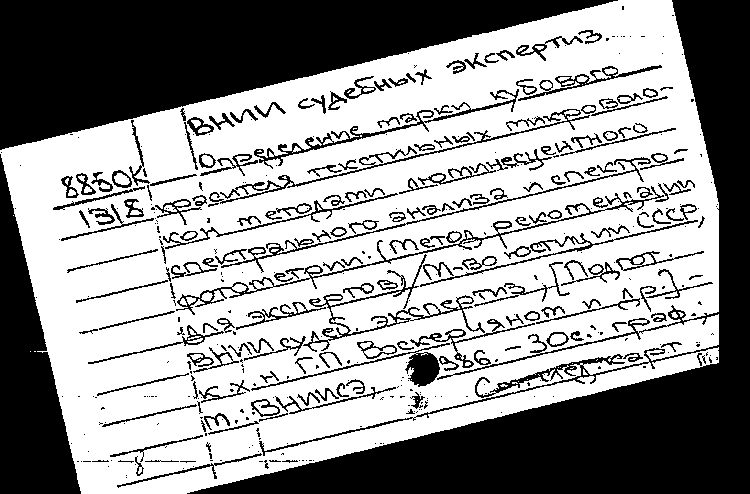 ВНИИ судебных экспертиз.
Определение марки кубового
8850К
красителя текстильных микроволо-
1318
кон методами люминесцентного
спектрального анализа и спектро-
фотометрии: (метод. рекомендации
для экспертов) / М-во юстиции СССР,
ВНИИ судеб. экспертиз; [Подгот.
к.х.н. Г.П. Воскерчян и др.] –
м.: ВНИИСЭ, 986. – 30 с.: граф.;
карт
8